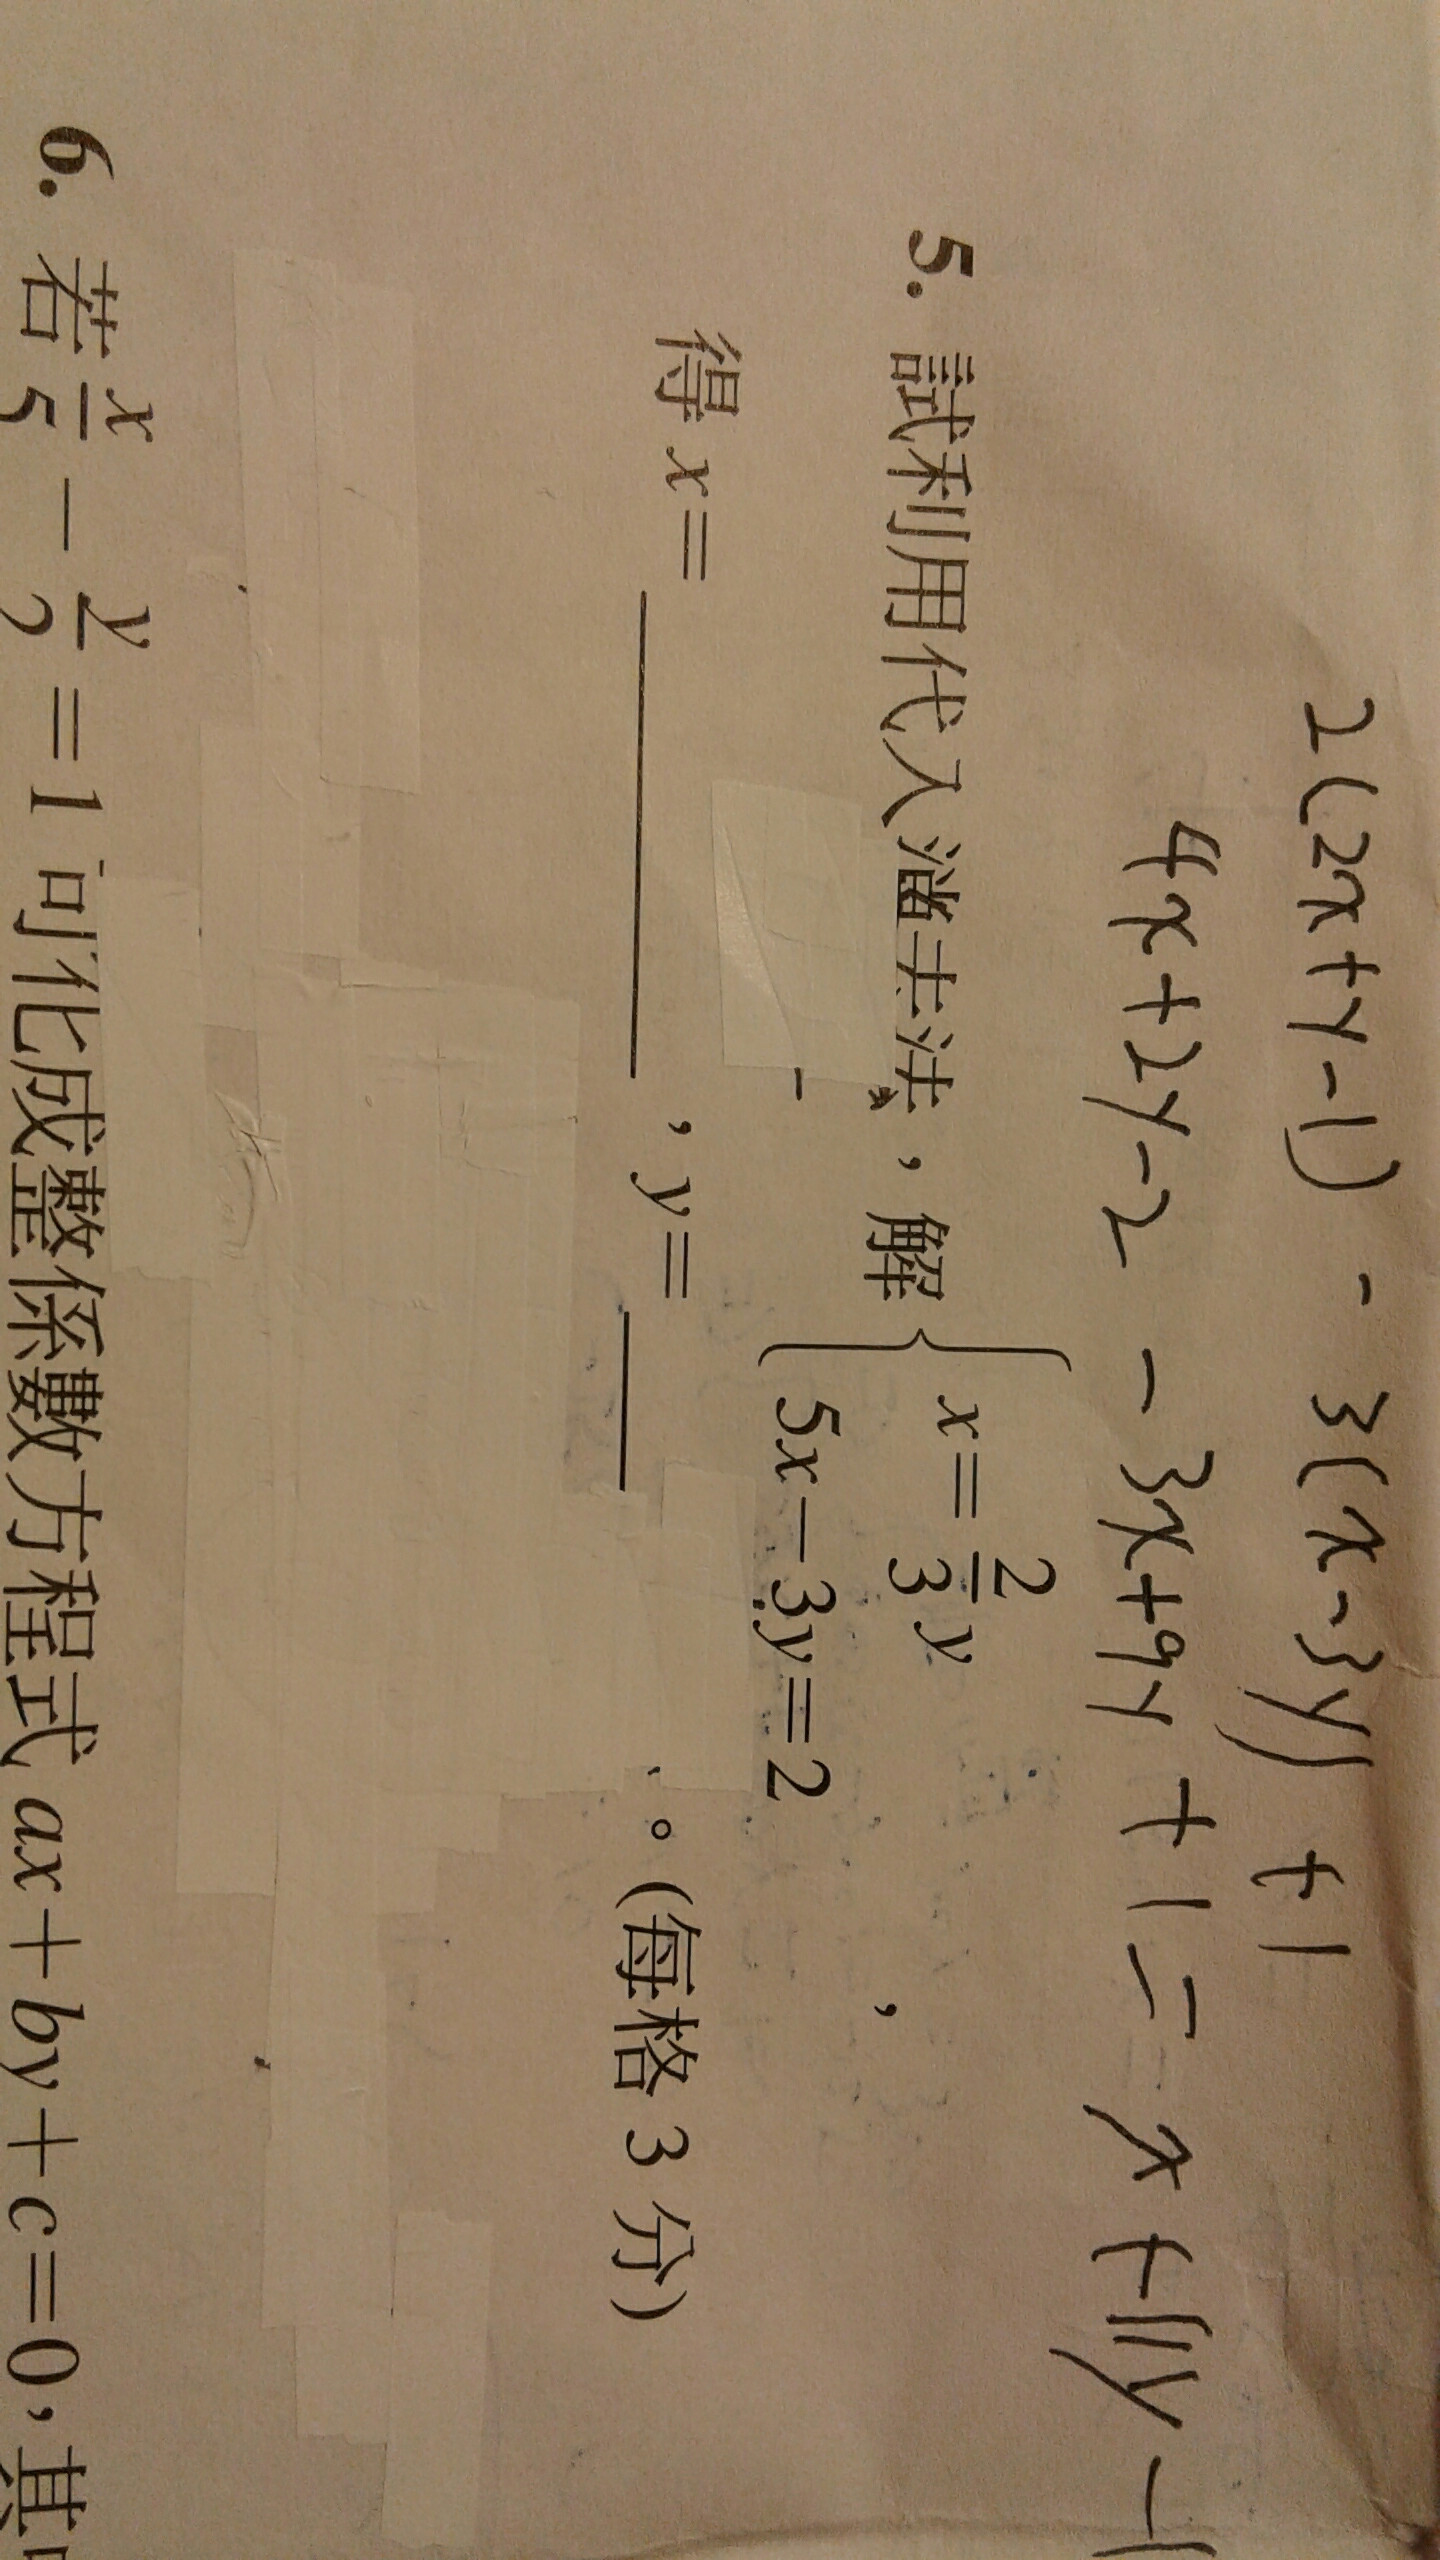 2(2x+y-1) - 3(x-3y) +1
4x+2y-2 - 3x+9y +1 = x+11y-1
5. 試利用代入消去法,解 { x=2/3 y
5x-3y=2 ,
得x= ,y= 。(每格3分)
6. 若 x/5 - y/2 =1可化成整係數方程式ax+by+c=0,其